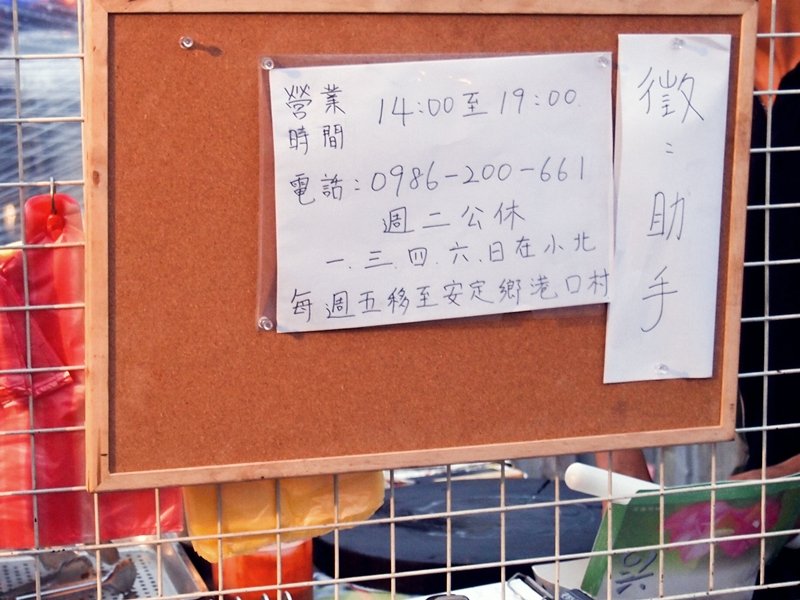 營業時間 14:00至19:00
電話:0986-200-661
週二公休
一.三.四.六.日在小北
每週五移至安定鄉港口村
徵:助手